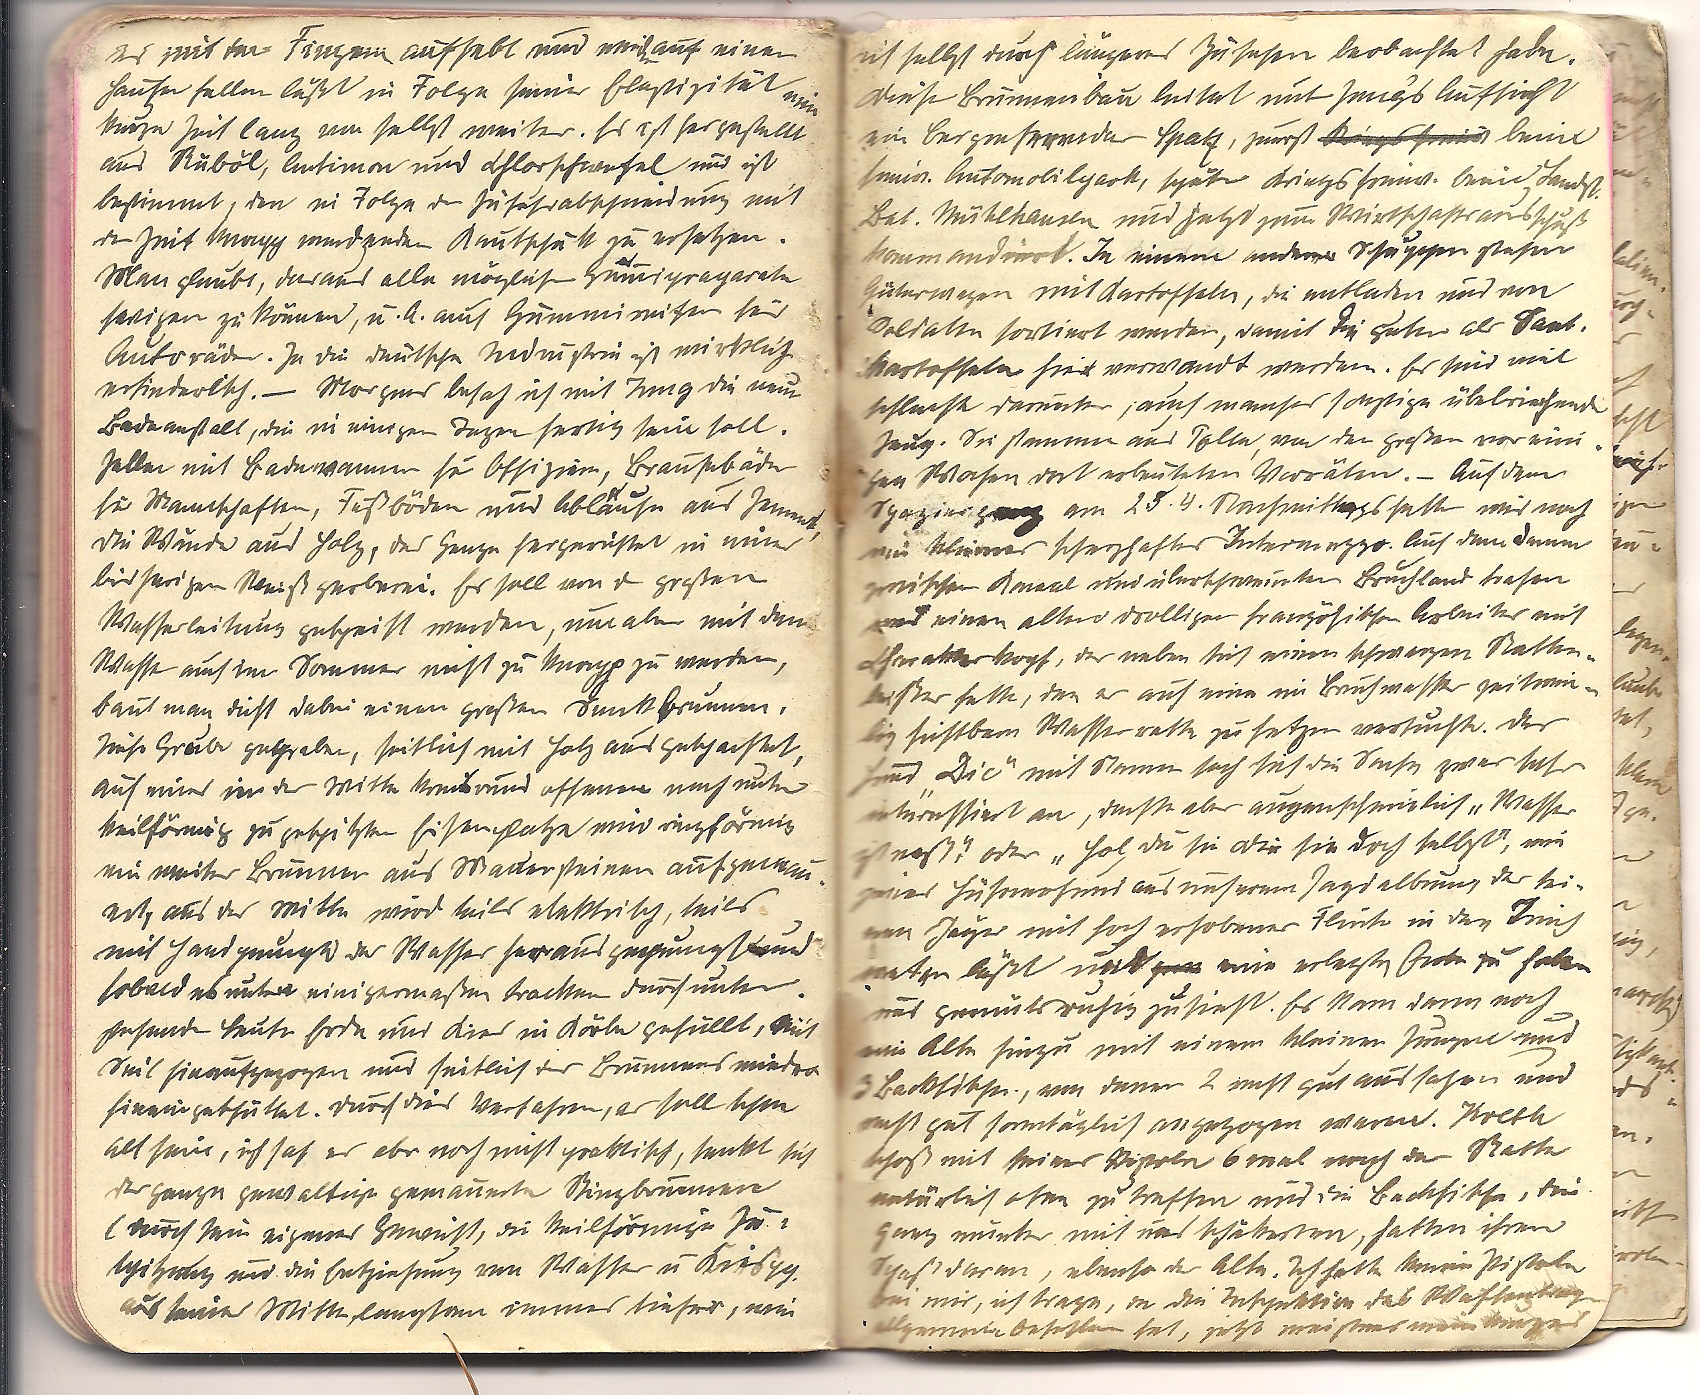 es mit den Fingern aufhebt und nachher auf einen
Haufen fallen läßt in Folge seiner Elastizität eine
kurze Zeit lang von selbst weiter. Es ist hergestellt
aus Rüböl, Antimon und Chlorschwefel und ist
bestimmt, den in Folge der Zufuhrabschneidung mit
der Zeit knapp werdenden Kautschuk zu ersetzen.
Man glaubt, daraus alle möglichen Gummipräparate
fertigen zu können, u. A. auch Gummireifen für
Autoräder. Ja die deutsche Industrie ist wirklich
erfinderisch. — Morgens besah ich mit Jung die neue
Badeanstalt, die in einigen Tagen fertig sein soll.
Zellen mit Badewannen für Offiziere, Brausebäder
für Mannschaften, Fußböden und Abläufe aus Zement,
die Wände aus Holz, das Ganze hergerichtet in einer
bisherigen Weißgerberei. Es soll von d großen
Wasserleitung gespeist werden, um aber mit dem
Wasser auch im Sommer nicht zu knapp zu werden,
baut man dicht dabei einen großen Senkbrunnen.
Tiefe Grube gegraben, seitlich mit Holz ausgeschachtet,
auf einer in der Mitte kreisrund offenen nach unten
keilförmig zugespitzten Eisenplatte wird ringförmig
ein weiter Brunnen aus Mauersteinen aufgemau-
ert, aus der Mitte wird teils elektrisch, teils
mit Handpumpe das Wasser herausgepumpt und
sobald es unten einigermaßen trocken durch unten
stehende Leute Erde und Kies in Körbe gefüllt, mit
Seil hinaufgezogen und seitlich des Brunnens wieder
hineingeschüttet. Durch dies Verfahren, es soll schon
alt sein, ich sah es aber noch nicht praktisch, senkt sich
der ganze gewaltige gemauerte Ringbrunnen
(durch sein eigenes Gewicht, die keilförmige Zu-
spitzung und die Entziehung von Wasser u Kies pp.
aus seiner Mitte langsam immer tiefer, wie
ich selbst durch längeres Zusehen beobachtet habe.
Diese Brunnenbau leitet unt Jungs Aufsicht
ein Bergreferendar Spatz, zuerst beim
freiw. Automobilpark, später Kriegsfreiw. beim Landst.
Bat. Mühlhausen und jetzt zum Wirtschaftsausschuß
kommandiert. In einem anderen Schuppen stehen
Güterwagen mit Kartoffeln, die entladen und von
Soldaten sortiert werden, damit die guten als Saat-
kartoffeln hier verwandt werden. Es sind viel
schlechte darunter, auch manches sonstige übelriechende
Zeug. Sie stammen aus, von den großen vor eini-
gen Wochen dort erbeuteten Vorräten. — Auf dem
Spaziergang am 25.4. Nachmittags hatten wir noch
ein kleines scherzhaftes Intermezzo. Auf dem Damm
zwischen Kanal und überschwemmten Bruchland trafen
wir einen alten drolligen französischen Arbeiter mit
Charakterkopf, der neben sich einen schwarzen Ratten-
beißer hatte, den er auf eine im Bruchwasser zeitwei-
lig sichtbare Wasserratte zu hetzen versuchte. Der
Hund „Dic“ mit Namen sah sich die Sache zwar sehr
interessiert an, dachte aber augenscheinlich „Wasser
ist naß“ oder „hol du sie dir sie doch selbst“, wie
jener Hühnerhund aus unserem Jagdalbum, der sei-
nen Jäger mit hoch erhobener Flinte in den Teich
waten läßt und eine erlegte Ente zu holen
und gemütsruhig zusieht. Es kam dann noch
ein Alter hinzu mit einem kleinen Jungen und
3 Backfischen, von denen 2 recht gut aussahen und
recht gut sonntäglich angezogen waren.
schoß mit seiner Pistole 6 mal nach der Ratte
natürlich ohne zu treffen und die Backfische, die
ganz munter mit uns schäkerten, hatten ihren
Spaß daran, ebenso der Alte. Ich hatte keine Pistole
bei mir, ich trage, da die Inspektion das Waffentragen
allgemein befohlen hat, jetzt meistens mein kurzes